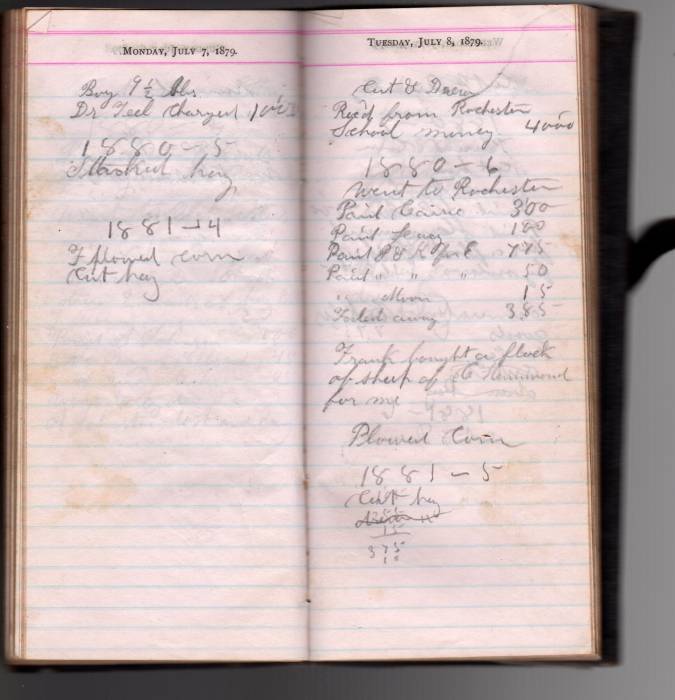 MONDAY, JULY 7, 1879.
Boy 9 1/2 lbs
Dr Teel Charged 1000
1880 - 5
Stacked hay
1881 - 4
F plowed corn
Cut hay
TUESDAY, JULY 8, 1879.
Cut &
Rec'd from Rochester
School money 4000
1880 - 6
Went to Rochester
Paid 300
Paid 100
Paid York 775
Paid " " " 50
" Moon 15
away 385
Frank bought a flock
of sheep of Hammond
for me
Plowed Corn
1881 - 5
Cut hay
15
375